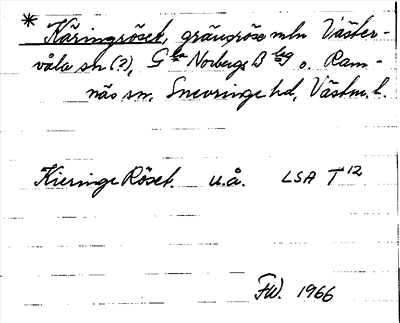 * Käringröset, gränsröse mln Väster-
våla sn (?), Gla Norbergs Bbg o. Ram-
näs sn, Snevringe hd, Västm. l.
Kieringe Röset. u.å. LSA T12
FW. 1966